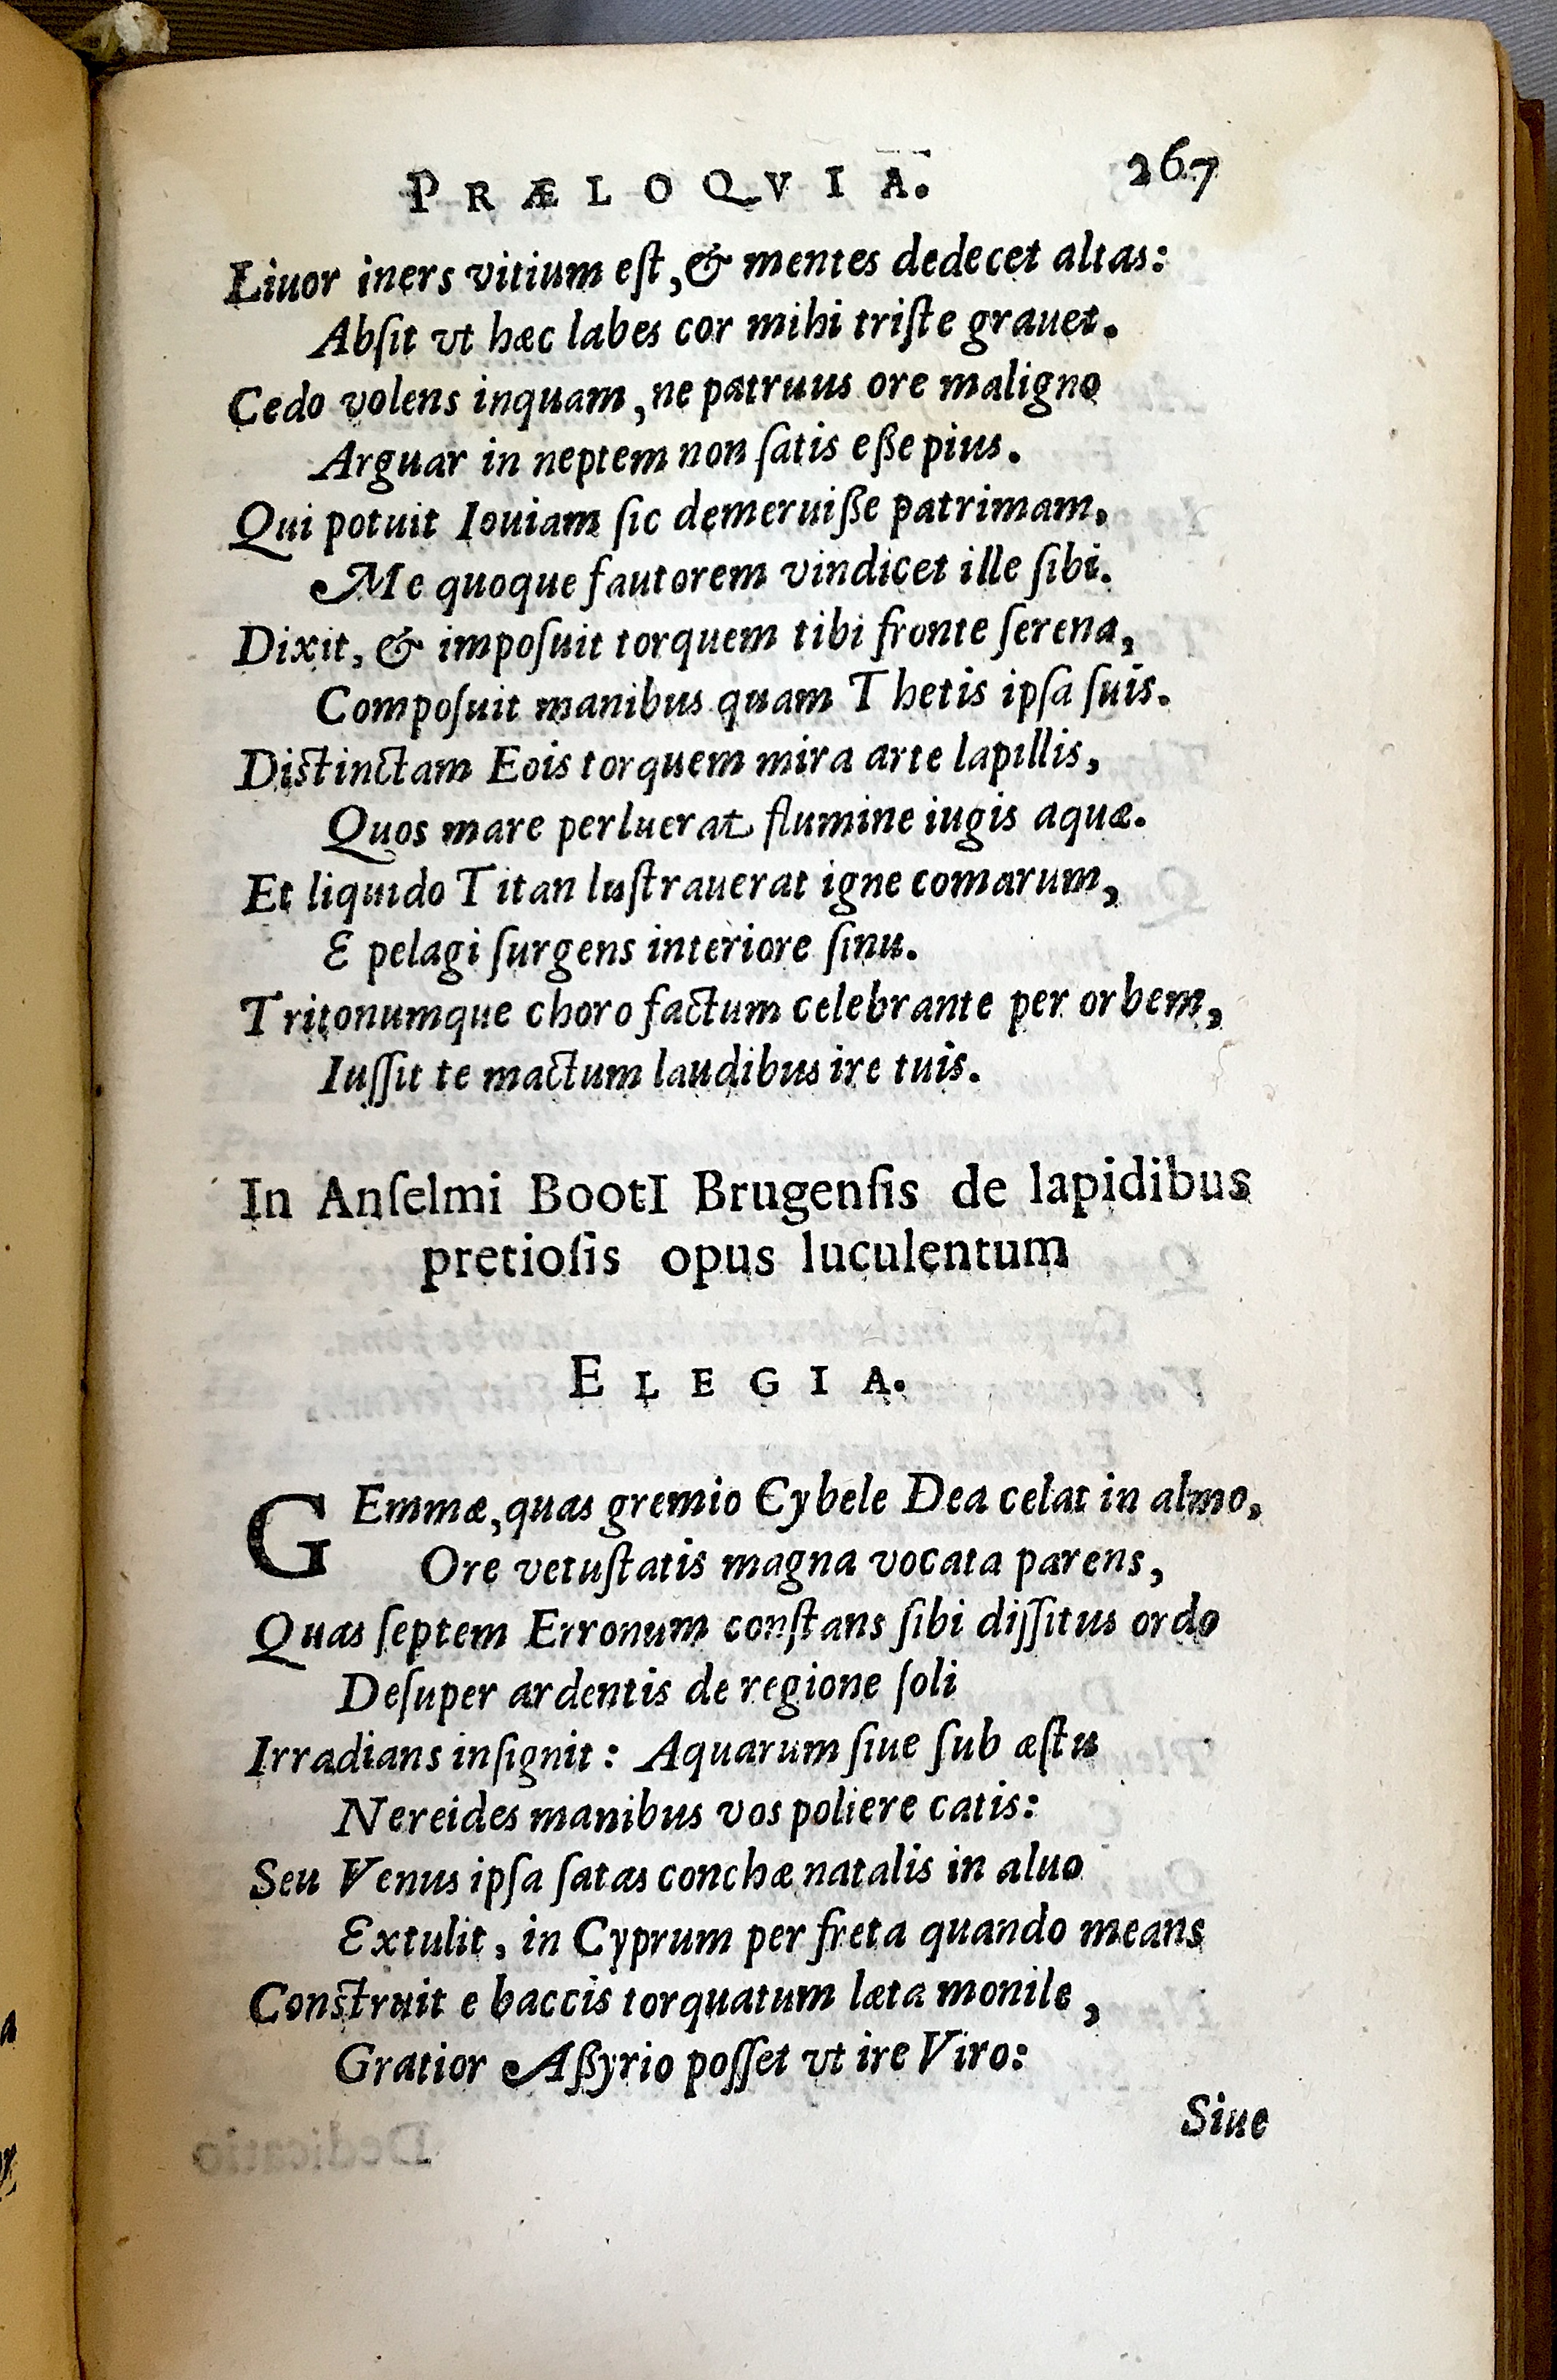 PRÆLOQVIA. 267
Liuor iners vitium eſt, & mentes dedecet altas:
Abſit vt hæc labes cor mihi triſte grauet.
Cedo volens inquam, ne patruus ore maligno
Arguar in neptem non ſatis eße pius.
Qui potuit Iouiam ſic demeruiße patrimam,
Me quoque fautorem vindicet ille ſibi.
Dixit, & impoſuit torquem tibi fronte ſerena,
Compoſuit manibus quam Thetis ipſa ſuis.
Distinctam Eois torquem mira arte lapillis,
Quos mare perluerat flumine iugis aquæ.
Et liquido Titan luſtrauerat igne comarum,
E pelagi ſurgens interiore ſinu.
Tritonumque choro factum celebrante per orbem,
Iuſſit te mactum laudibus ire tuis.
In Anſelmi BootI Brugenſis de lapidibus
pretioſis opus luculentum
ELEGIA.
GEmmæ, quas gremio Cybele Dea celat in almo,
Ore vetuſtatis magna vocata parens,
Quas ſeptem Erronum conſtans ſibi diſſitus ordo
Deſuper ardentis de regione ſoli
Irradians inſignit: Aquarum ſiue ſub æſtu
Nereides manibus vos poliere catis:
Seu Venus ipſa ſatas conchæ natalis in aluo
Extulit, in Cyprum per freta quando means
Construit e baccis torquatum læta monile,
Gratior Aßyrio poſſet vt ire Viro:
Siue